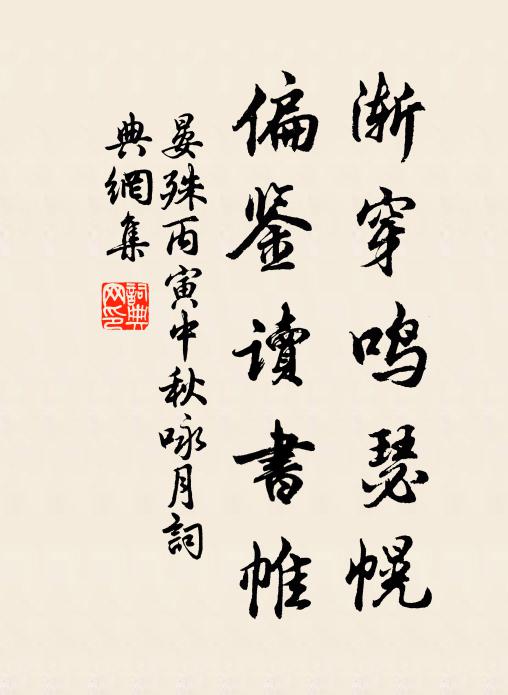 渐穿鸣瑟幌
偏鉴读書帷
晏殊丙寅中秋咏月詞
典網集
詞典
网印